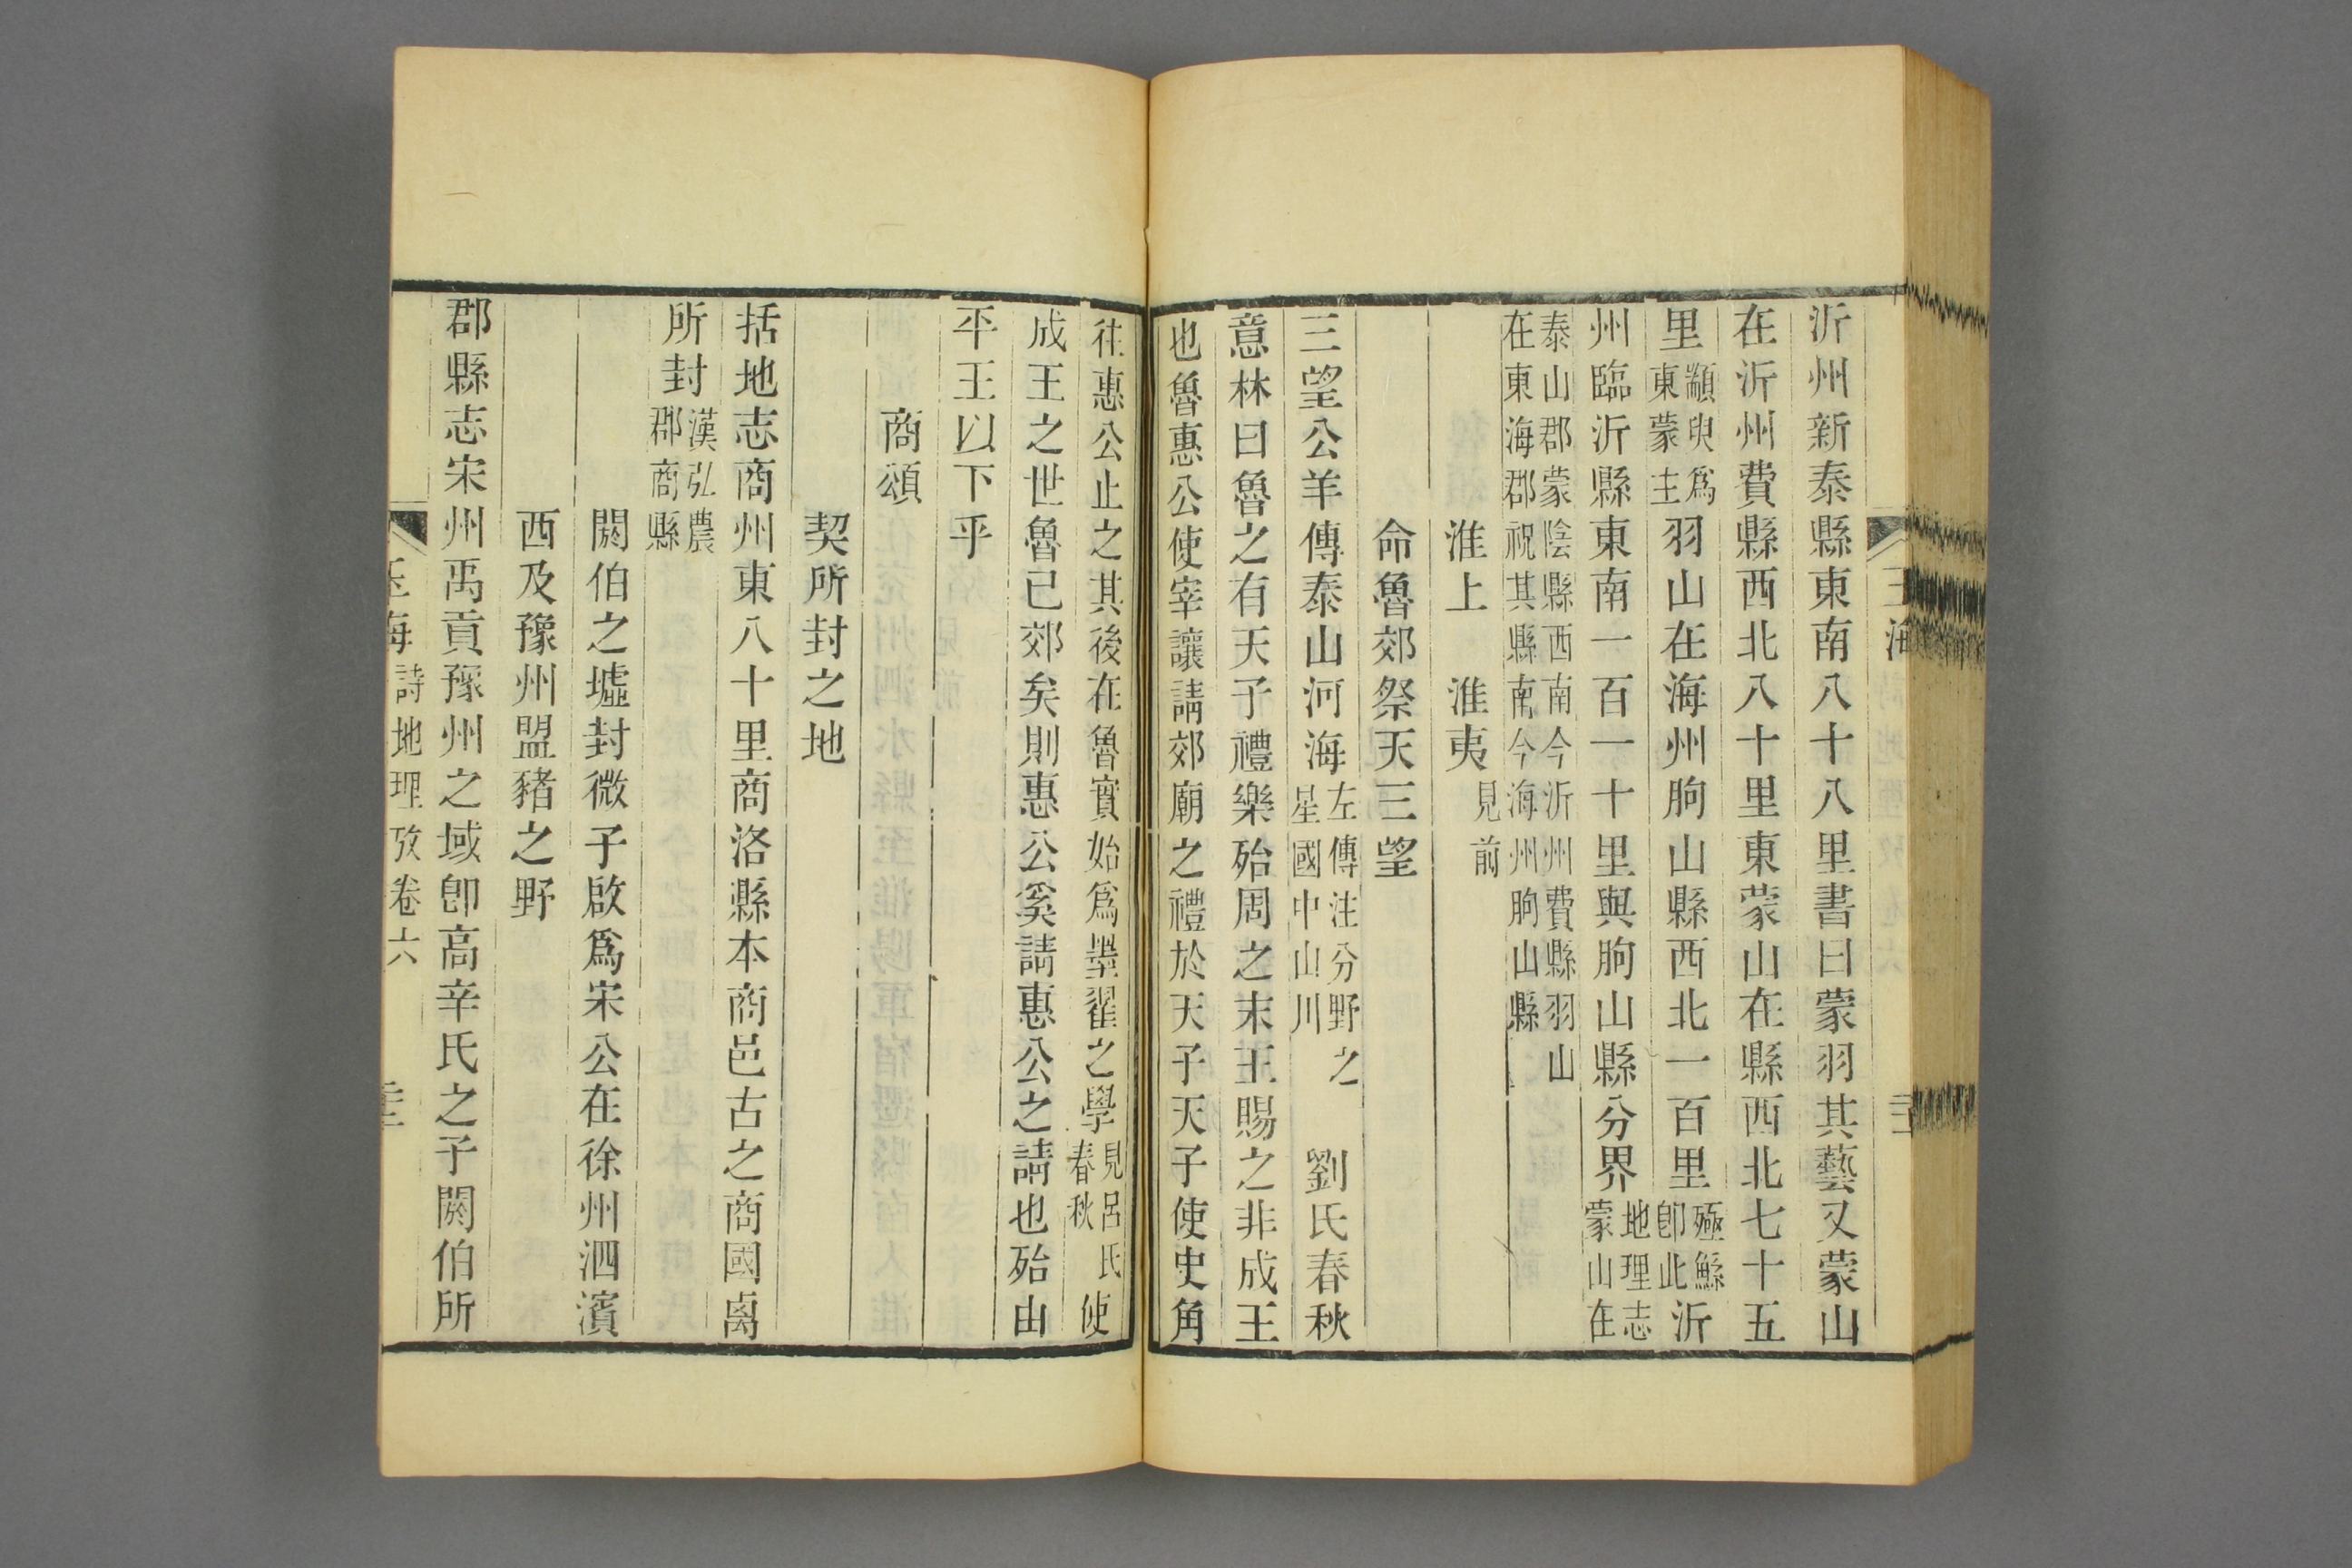 沂州新泰縣東南八十八里書曰蒙羽其藝又蒙山
在沂州費縣西北八十里東蒙山在縣西北七十五
里顓臾爲東蒙主羽山在海州朐山縣西北一百里殛鯀卽此沂
州臨沂縣東南一百一十里與朐山縣分界地理志蒙山在
泰山郡蒙陰縣西南今沂州費縣羽山
在東海郡祝其縣南今海州朐山縣
淮上 淮夷見前
命魯郊祭天三望
三望公羊傳泰山河海左傳注分野之星國中山川 劉氏春秋
意林曰魯之有天子禮樂殆周之末王賜之非成王
也魯惠公使宰讓請郊廟之禮於天子天子使史角
往惠公止之其後在魯實始爲墨翟之學見呂氏春秋使
成王之世魯已郊矣則惠公奚請惠公之請也殆由
平王以下乎
商頌
契所封之地
括地志商州東八十里商洛縣本商邑古之商國禼
所封漢弘農郡商縣
閼伯之墟封微子啟爲宋公在徐州泗濱
西及豫州盟豬之野
郡縣志宋州禹貢豫州之域卽高辛氏之子閼伯所
玉海 詩地理攷卷六
玉海